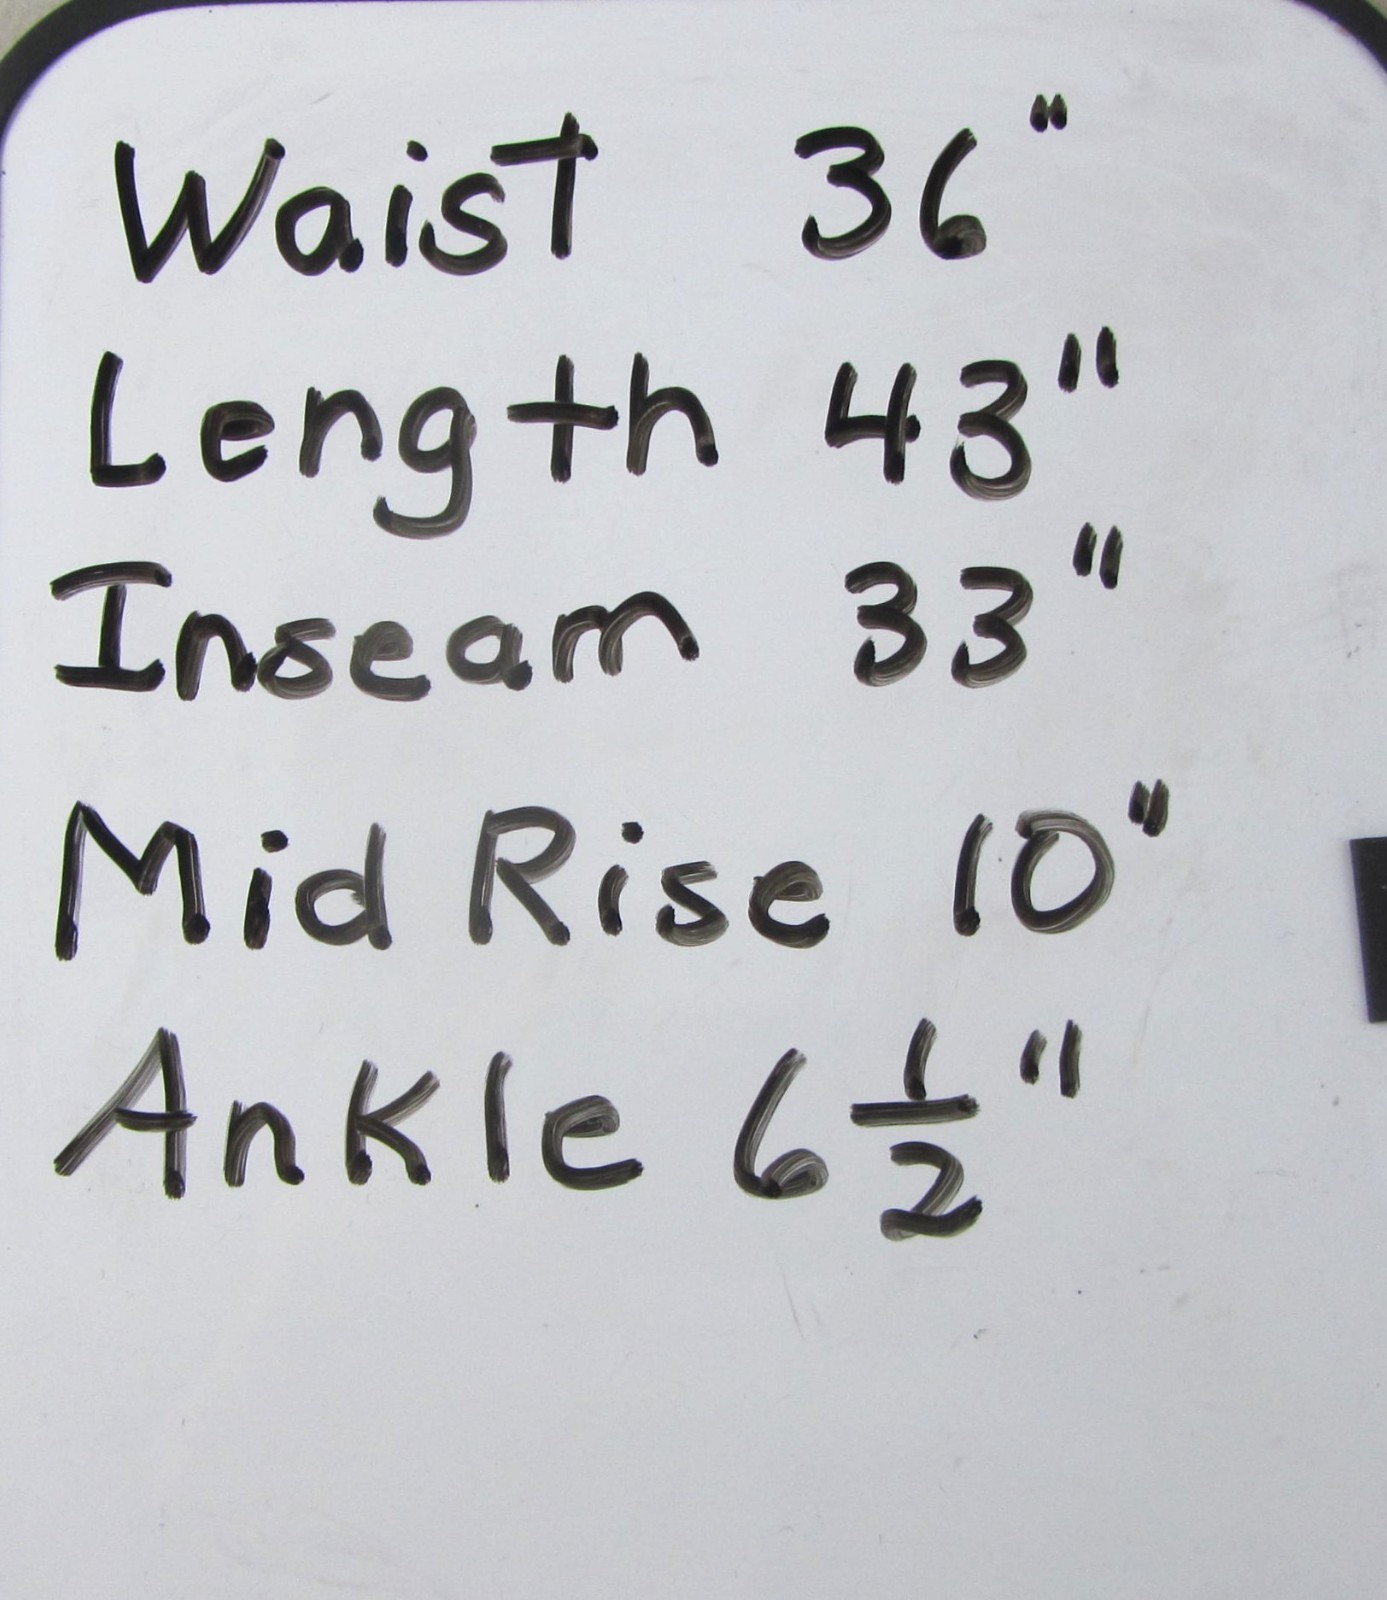 Waist 36"
Length 43"
Inseam 33"
Mid Rise 10"
Ankle 6 1/2"